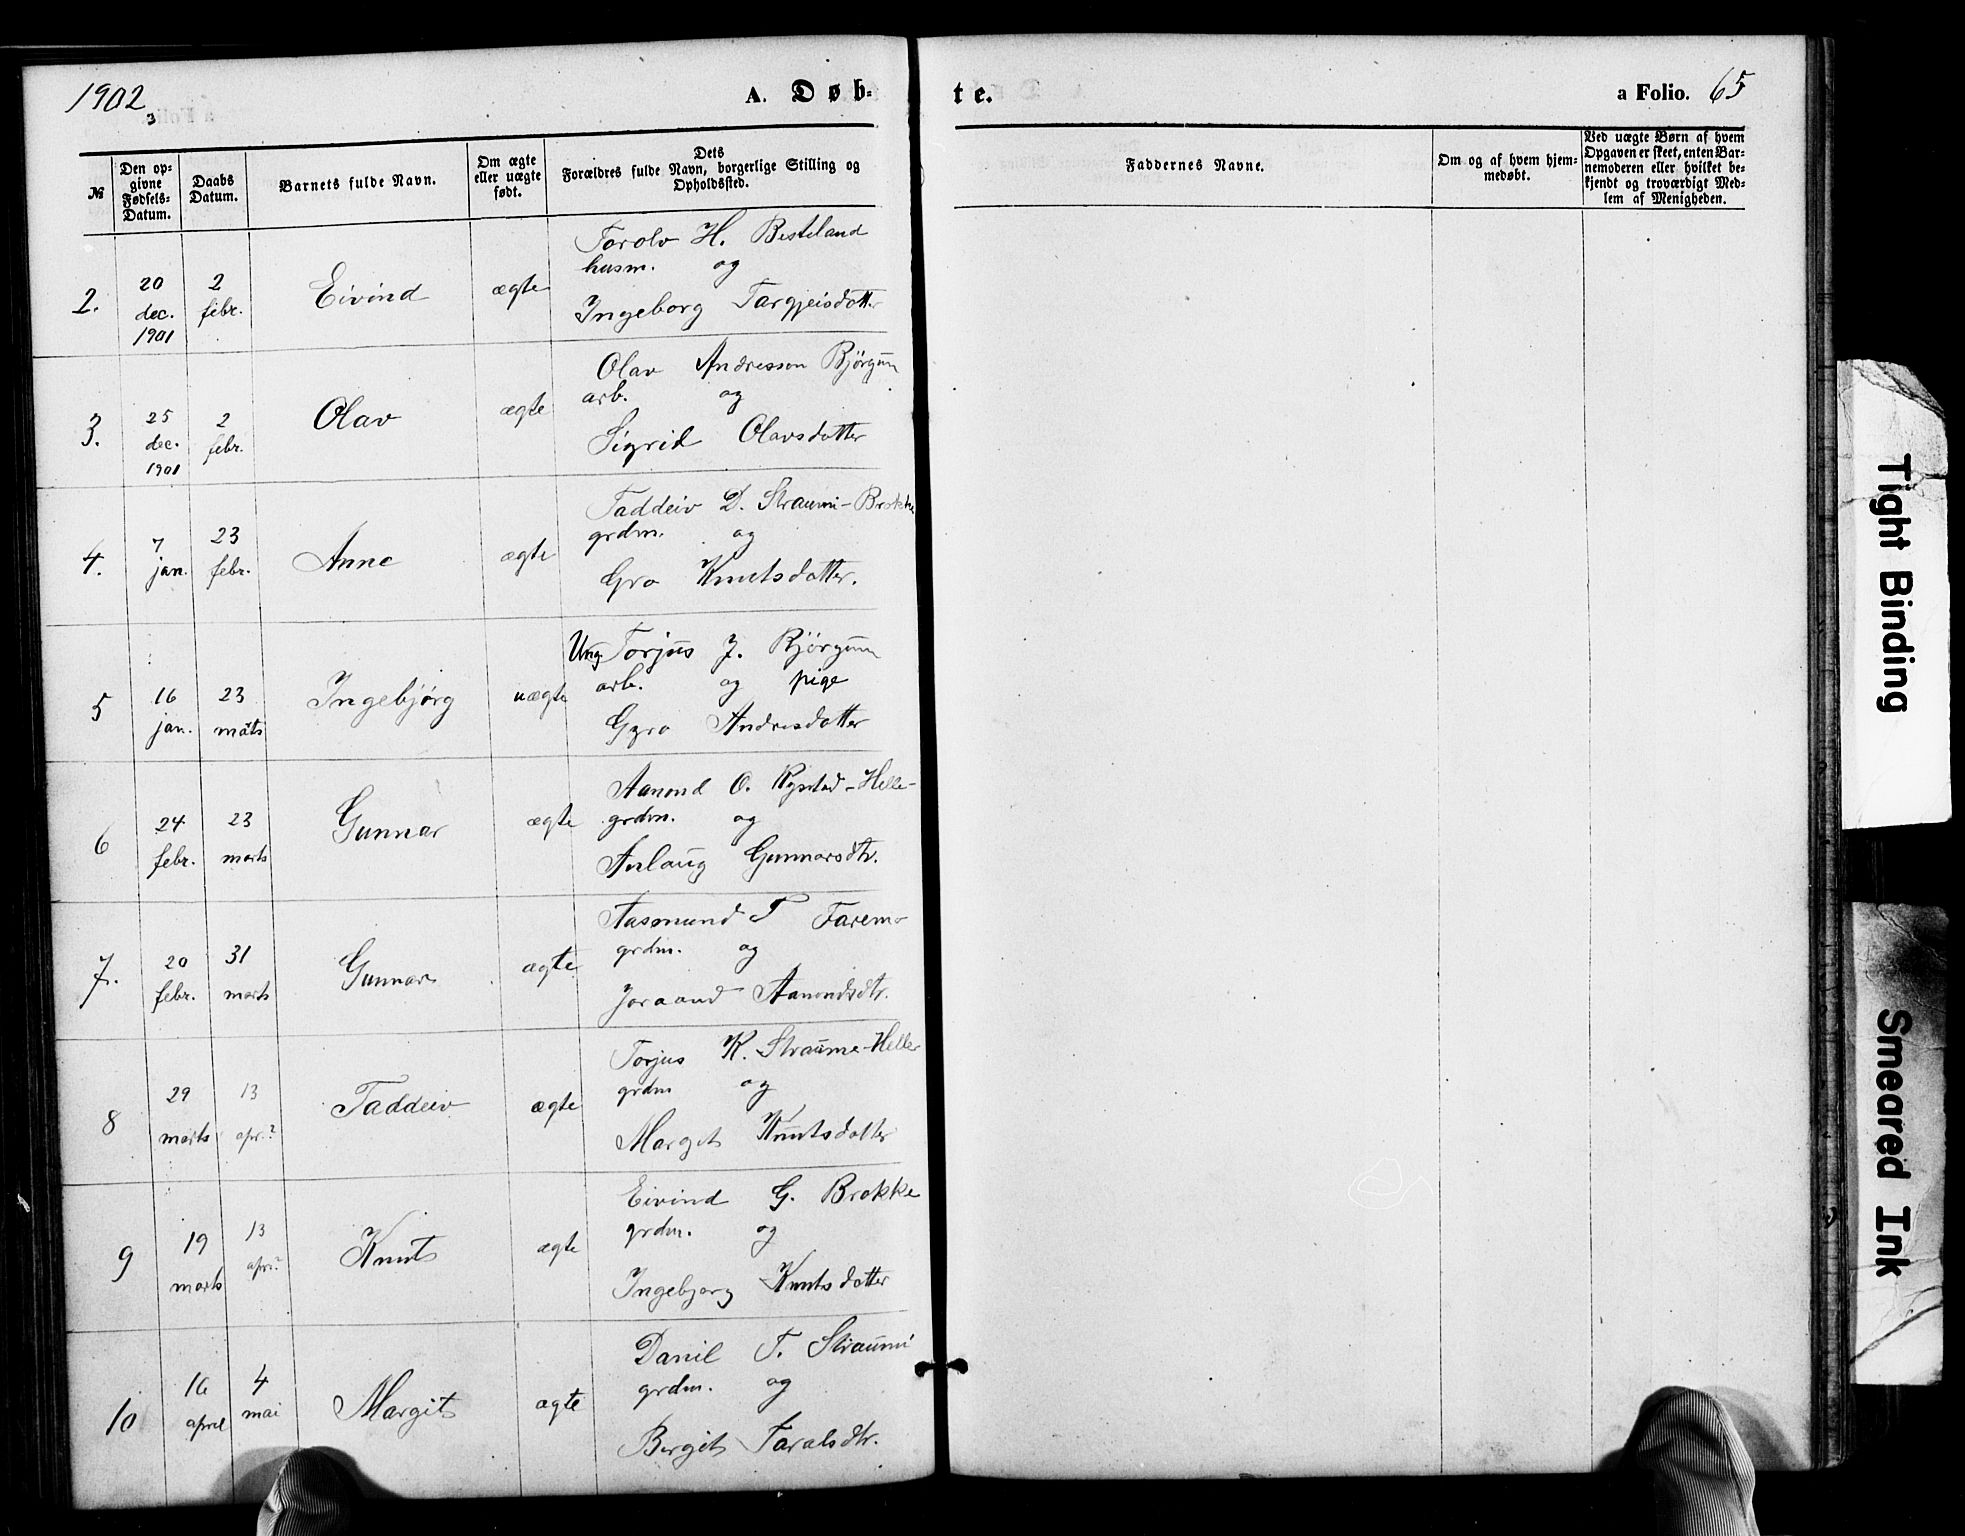 1902
3
A. Døb-
te.
a Folio. 65
№
Den op-
givne
Fødsels-
Datum.
Daabs
Datum.
Barnets fulde Navn.
Om ægte
eller uægte
født.
Dets
Forældres fulde Navn, borgerlige Stilling og
Opholdssted.
Faddernes Navne.
Om og af hvem hjem-
medøbt.
Ved uægte Børn af hvem
Opgaven er skeet, enten Bar-
nemoderen eller hvilket be-
kjendt og troværdigt Med-
lem af Menigheden.
2. 20 dec. 1901 2 febr. Eivind ægte
Torolv H. Besteland
husm. og
Ingeborg Targjeisdotter
3. 25 dec. 1901 2 febr. Olav ægte
Olav Andresson Bjørgum
arb. og
Sigrid Olavsdotter
4. 7 jan. 23 febr. Anne ægte
Taddeiv D. Straumi-Brokke
grdm. og
Gro Knutsdotter.
5 16 jan. 23 marts Ingebjørg uægte
Ung. Torjus J. Bjørgum
arb. og pige
Gyro Andresdotter
6 24 febr. 23 marts Gunnar ægte
Aanond O. Rysstad-Helle-
grdm. og
Anlaug Gunnarsdtr.
7. 20 febr. 31 marts Gunnar ægte
Aasmund T Faremo
grdm. og
Joraand Aanondsdtr.
8 29 marts 13 apr. Taddeiv ægte
Torjus K. Straume-Heller
grdm og
Margit Knutsdotter
9 19 marts 13 apr. Knut ægte
Eivind G. Brokke
grdm. og
Ingebjorg Knutsdotter
10 16 april 4 mai Margit ægte
Danil T. Straumi
grdm. og
Bergit Taralsdtr.
Tight Binding
Smeared Ink